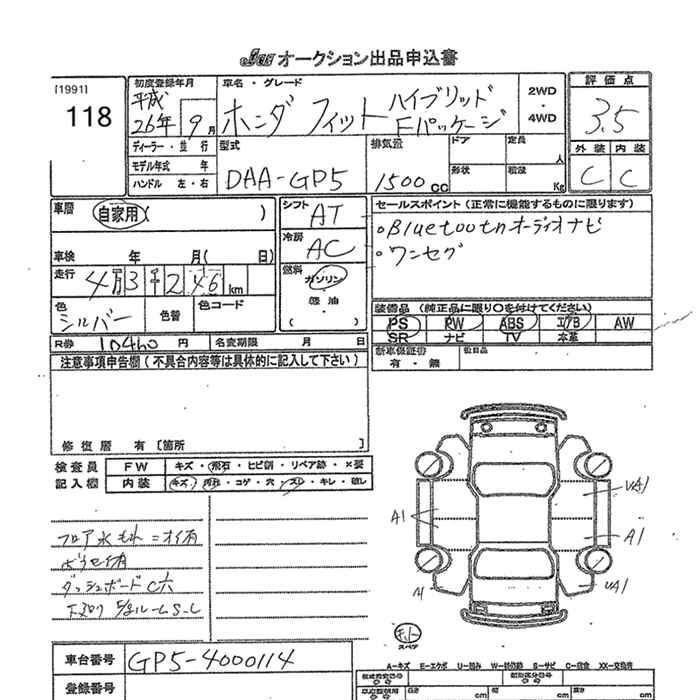 JU オークション出品申込書
[1991]
118
初度登録年月
平成
26年 9月
車名・グレード
ホンダ フィット ハイブリッド
Fパッケージ
2WD
・
4WD
評価点
3.5
外装 内装
C C
ディーラー・並行
モデル年式 年
ハンドル 左・右
型式
DAA-GP5
排気量
1500cc
ドア
形状
定員
人
積載
Kg
車歴
自家用( )
車検 年 月( 日)
走行
4万3千246km
色
シルバー
色替
色コード
シフト
AT
冷房
AC
燃料
ガソリン
軽油
( )
セールスポイント(正常に機能するものに限ります)
。Bluetoothオーディオナビ
。ワンセグ
装備品(純正品に限り〇を付けてください)
PS PW ABS エアB AW
SR ナビ TV 本革
新車保証書
有・無
後日品
R券 10460円
名変期限 月 日
注意事項申告欄(不具合内容等は具体的に記入して下さい)
修復歴 有[箇所 ]
検査員
記入欄
FW キズ・飛石・ヒビ割・リペア跡・×要
内装 キズ・汚れ・コゲ・穴・スレ・キレ・破レ
フロア水もれ=オイ有
ダッシュボードC穴
A1
A1
UA1
A1
UA1
スペア
車台番号 GP5-4000114
登録番号
A-キズ E-エクボ U-凹み W-補修跡 S-サビ C-腐食 XX-交換済
長さ cm
幅 cm
高さ cm